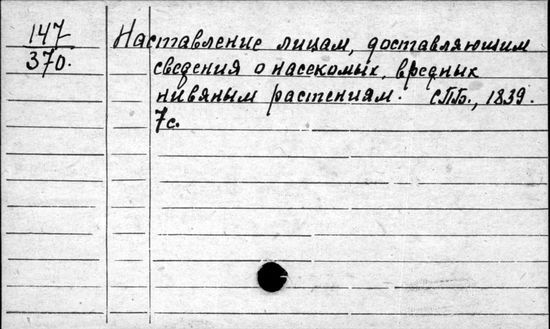 147
370.
Наставление лицам, доставляющим
сведения о насекомых, вредных
нивяным растениям. СПБ., 1839.
7с.